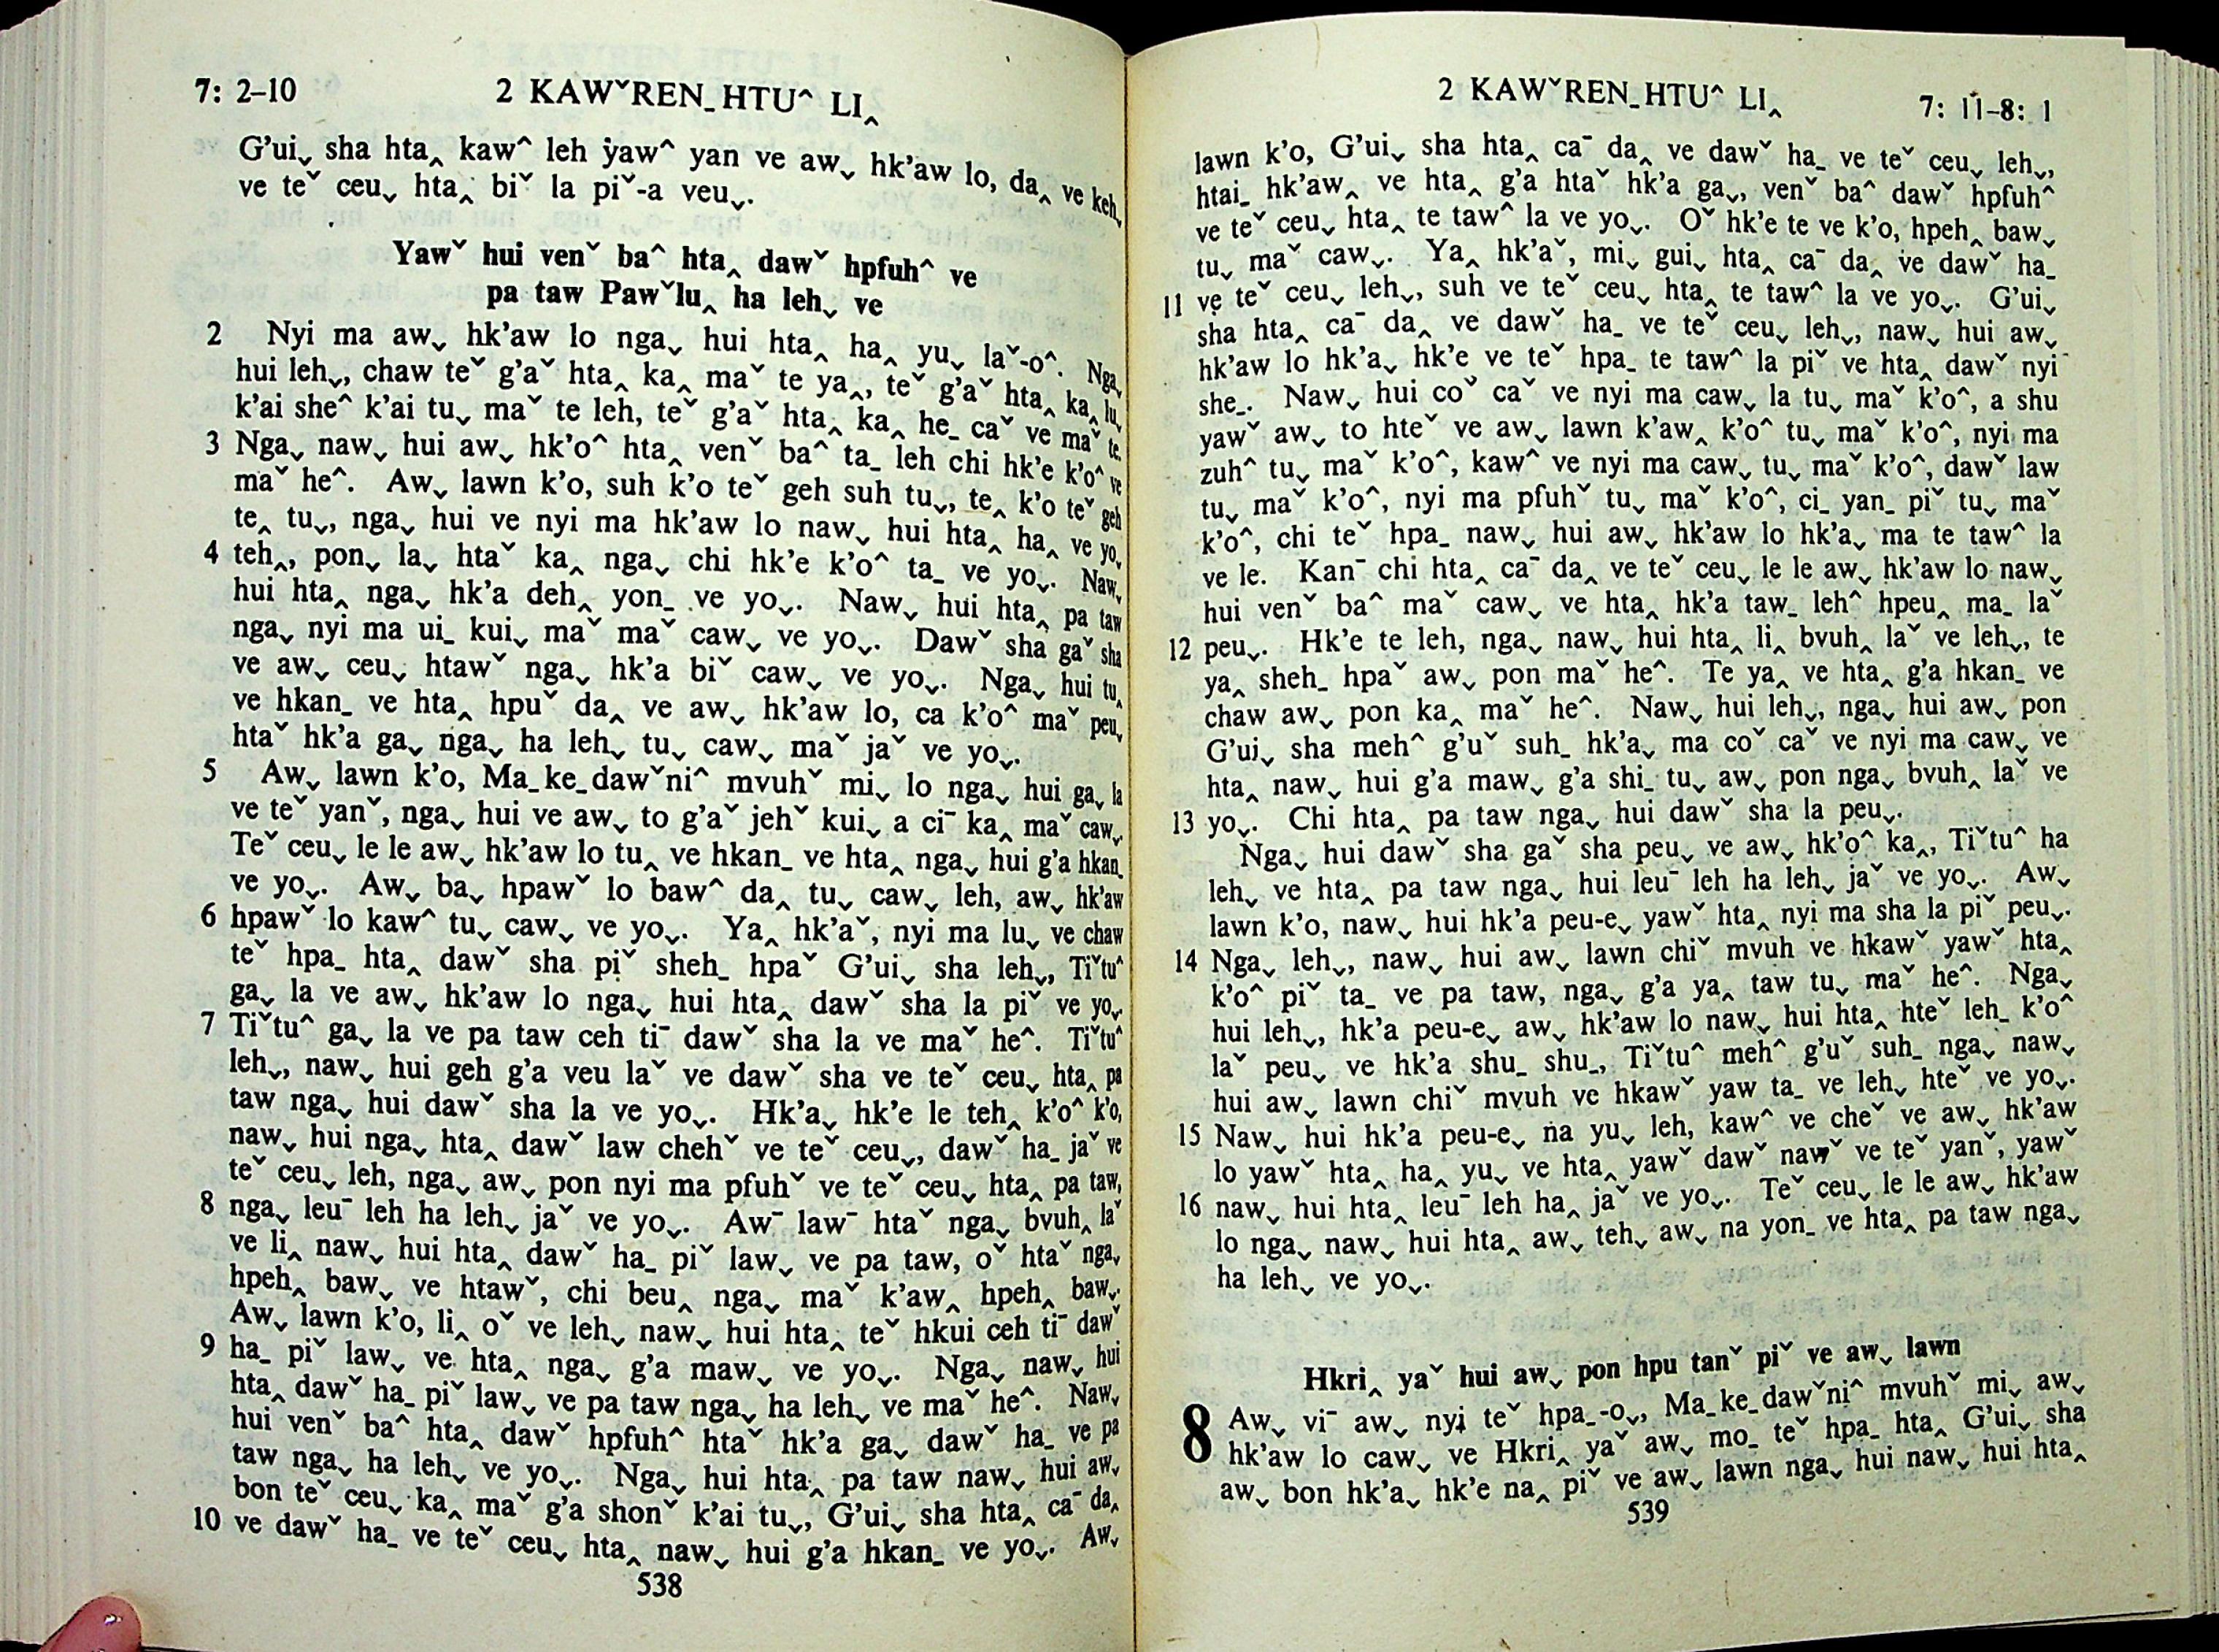 7: 2–10 2 KAWˇREN_HTU^ LI‸
G'uiˬ sha hta‸ kaw^ leh yaw^ yan ve awˬ hk'aw lo, da‸ ve kehˬ
ve teˇ ceuˬ hta‸ biˇ la piˇ-a veuˬ.
Yawˇ hui venˇ ba^ hta‸ dawˇ hpfuh^ ve
pa taw Pawˇlu‸ ha lehˬ ve
2 Nyi ma awˬ hk'aw lo ngaˬ hui hta‸ ha‸ yuˬ laˇ-o^. Ngaˬ
hui lehˬ, chaw teˇ g'aˇ hta‸ ka‸ maˇ te ya‸, teˇ g'aˇ hta‸ ka‸ luˬ
k'ai she^ k'ai tuˬ maˇ te leh, teˇ g'aˇ hta‸ ka‸ he_ caˇ ve maˇ te.
3 Ngaˬ nawˬ hui awˬ hk'o^ hta‸ venˇ ba^ ta_ leh chi hk'e k'o^ ve
maˇ he^. Awˬ lawn k'o, suh k'o teˇ geh suh tuˬ, te‸ k'o teˇ geh
te‸ tuˬ, ngaˬ hui ve nyi ma hk'aw lo nawˬ hui hta‸ ha‸ ve yoˬ
4 teh‸, ponˬ laˬ htaˇ ka‸ ngaˬ chi hk'e k'o^ ta_ ve yoˬ. Nawˬ
hui hta‸ ngaˬ hk'a deh‸ yon_ ve yoˬ. Nawˬ hui hta‸ pa taw
ngaˬ nyi ma ui_ kuiˬ maˇ maˇ cawˬ ve yoˬ. Dawˇ sha gaˇ sha
ve awˬ ceuˬ htawˇ ngaˬ hk'a biˇ cawˬ ve yoˬ. Ngaˬ hui tu‸
ve hkan_ ve hta‸ hpuˇ da‸ ve awˬ hk'aw lo, ca k'o^ maˇ peuˬ
htaˇ hk'a gaˬ ngaˬ ha lehˬ tuˬ cawˬ maˇ jaˇ ve yoˬ.
5 Awˬ lawn k'o, Ma_ke_dawˇni^ mvuhˇ miˬ lo ngaˬ hui gaˬ la
ve teˇ yanˇ, ngaˬ hui ve awˬ to g'aˇ jehˇ kuiˬ a ciˉ ka‸ maˇ cawˬ.
Teˇ ceuˬ le le awˬ hk'aw lo tu‸ ve hkan_ ve hta‸ ngaˬ hui g'a hkan_
ve yoˬ. Awˬ baˬ hpawˇ lo baw^ da‸ tuˬ cawˬ leh, awˬ hk'aw
6 hpawˇ lo kaw^ tuˬ cawˬ ve yoˬ. Ya‸ hk'aˇ, nyi ma luˬ ve chaw
teˇ hpa_ hta‸ dawˇ sha piˇ sheh_ hpaˇ G'uiˬ sha lehˬ, Tiˇtu^
gaˬ la ve awˬ hk'aw lo ngaˬ hui hta‸ dawˇ sha la piˇ ve yoˬ.
7 Tiˇtu^ gaˬ la ve pa taw ceh tiˉ dawˇ sha la ve maˇ he^. Tiˇtu^
lehˬ, nawˬ hui geh g'a veu laˇ ve dawˇ sha ve teˇ ceuˬ hta‸ pa
taw ngaˬ hui dawˇ sha la ve yoˬ. Hk'aˬ hk'e le teh‸ k'o^ k'o,
nawˬ hui ngaˬ hta‸ dawˇ law chehˇ ve teˇ ceuˬ, dawˇ ha_ jaˇ ve
teˇ ceuˬ leh, ngaˬ awˬ pon nyi ma pfuhˇ ve teˇ ceuˬ hta‸ pa taw,
8 ngaˬ leuˉ leh ha lehˬ jaˇ ve yoˬ. Awˉ lawˉ htaˇ ngaˬ bvuh‸ laˇ
ve li‸ nawˬ hui hta‸ dawˇ ha_ piˇ lawˬ ve pa taw, oˇ htaˇ ngaˬ
hpeh‸ bawˬ ve htawˇ, chi beu‸ ngaˬ maˇ k'aw‸ hpeh‸ bawˬ.
Awˬ lawn k'o, li‸ oˇ ve lehˬ nawˬ hui hta‸ teˇ hkui ceh tiˉ dawˇ
9 ha_ piˇ lawˬ ve hta‸ ngaˬ g'a mawˬ ve yoˬ. Ngaˬ nawˬ hui
hta‸ dawˇ ha_ piˇ lawˬ ve pa taw ngaˬ ha lehˬ ve maˇ he^. Nawˬ
hui venˇ ba^ hta‸ dawˇ hpfuh^ htaˇ hk'a gaˬ dawˇ ha_ ve pa
taw ngaˬ ha lehˬ ve yoˬ. Ngaˬ hui hta‸ pa taw nawˬ hui awˬ
bon teˇ ceuˬ ka‸ maˇ g'a shonˇ k'ai tuˬ, G'uiˬ sha hta‸ caˉ da‸
10 ve dawˇ ha_ ve teˇ ceuˬ hta‸ nawˬ hui g'a hkan_ ve yoˬ. Awˬ
538
2 KAWˇREN_HTU^ LI‸ 7: 11–8: 1
lawn k'o, G'uiˬ sha hta‸ caˉ da‸ ve dawˇ ha_ ve teˇ ceuˬ lehˬ,
htai_ hk'aw‸ ve hta‸ g'a htaˇ hk'a gaˬ, venˇ ba^ dawˇ hpfuh^
ve teˇ ceuˬ hta‸ te taw^ la ve yoˬ. Oˇ hk'e te ve k'o, hpeh‸ bawˬ
tuˬ maˇ cawˬ. Ya‸ hk'aˇ, miˬ guiˬ hta‸ caˉ da‸ ve dawˇ ha_
11 ve teˇ ceuˬ lehˬ, suh ve teˇ ceuˬ hta‸ te taw^ la ve yoˬ. G'uiˬ
sha hta‸ caˉ da‸ ve dawˇ ha_ ve teˇ ceuˬ lehˬ, nawˬ hui awˬ
hk'aw lo hk'aˬ hk'e ve teˇ hpa_ te taw^ la piˇ ve hta‸ dawˇ nyi
she_. Nawˬ hui coˇ caˇ ve nyi ma cawˬ la tuˬ maˇ k'o^, a shu
yawˇ awˬ to hteˇ ve awˬ lawn k'aw‸ k'o^ tuˬ maˇ k'o^, nyi ma
zuh^ tuˬ maˇ k'o^, kaw^ ve nyi ma cawˬ tuˬ maˇ k'o^, dawˇ law
tuˬ maˇ k'o^, nyi ma pfuhˇ tuˬ maˇ k'o^, ci_ yan_ piˇ tuˬ maˇ
k'o^, chi teˇ hpa_ nawˬ hui awˬ hk'aw lo hk'aˬ ma te taw^ la
ve le. Kanˉ chi hta‸ caˉ da‸ ve teˇ ceuˬ le le awˬ hk'aw lo nawˬ
hui venˇ ba^ maˇ cawˬ ve hta‸ hk'a taw_ leh^ hpeu‸ ma_ laˇ
12 peuˬ. Hk'e te leh, ngaˬ nawˬ hui hta‸ li‸ bvuh‸ laˇ ve lehˬ, te
ya‸ sheh_ hpaˇ awˬ pon maˇ he^. Te ya‸ ve hta‸ g'a hkan_ ve
chaw awˬ pon ka‸ maˇ he^. Nawˬ hui lehˬ, ngaˬ hui awˬ pon
G'uiˬ sha meh^ g'uˇ suh_ hk'aˬ ma coˇ caˇ ve nyi ma cawˬ ve
hta‸ nawˬ hui g'a mawˬ g'a shi_ tuˬ awˬ pon ngaˬ bvuh‸ laˇ ve
13 yoˬ. Chi hta‸ pa taw ngaˬ hui dawˇ sha la peuˬ.
Ngaˬ hui dawˇ sha gaˇ sha peuˬ ve awˬ hk'o^ ka‸, Tiˇtu^ ha
lehˬ ve hta‸ pa taw ngaˬ hui leuˉ leh ha lehˬ jaˇ ve yoˬ. Awˬ
lawn k'o, nawˬ hui hk'a peu-eˬ yawˇ hta‸ nyi ma sha la piˇ peuˬ.
14 Ngaˬ lehˬ, nawˬ hui awˬ lawn chiˇ mvuh ve hkawˇ yawˇ hta‸
k'o^ piˇ ta_ ve pa taw, ngaˬ g'a ya‸ taw tuˬ maˇ he^. Ngaˬ
hui lehˬ, hk'a peu-eˬ awˬ hk'aw lo nawˬ hui hta‸ hteˇ leh_ k'o^
laˇ peuˬ ve hk'a shu_ shu_, Tiˇtu^ meh^ g'uˇ suh_ ngaˬ nawˬ
hui awˬ lawn chiˇ mvuh ve hkawˇ yaw ta_ ve lehˬ hteˇ ve yoˬ.
15 Nawˬ hui hk'a peu-eˬ na yuˬ leh, kaw^ ve cheˇ ve awˬ hk'aw
lo yawˇ hta‸ ha‸ yuˬ ve hta‸ yawˇ dawˇ nawˇ ve teˇ yanˇ, yawˇ
16 nawˬ hui hta‸ leuˉ leh ha‸ jaˇ ve yoˬ. Teˇ ceuˬ le le awˬ hk'aw
lo ngaˬ nawˬ hui hta‸ awˬ tehˬ awˬ na yon_ ve hta‸ pa taw ngaˬ
ha lehˬ ve yoˬ.
Hkri‸ yaˇ hui awˬ pon hpu tanˇ piˇ ve awˬ lawn
8 Awˬ viˉ awˬ nyi teˇ hpa_-oˬ, Ma_ke_dawˇni^ mvuhˇ miˬ awˬ
hk'aw lo cawˬ ve Hkri‸ yaˇ awˬ mo_ teˇ hpa_ hta‸ G'uiˬ sha
awˬ bon hk'aˬ hk'e na‸ piˇ ve awˬ lawn ngaˬ hui nawˬ hui hta‸
539